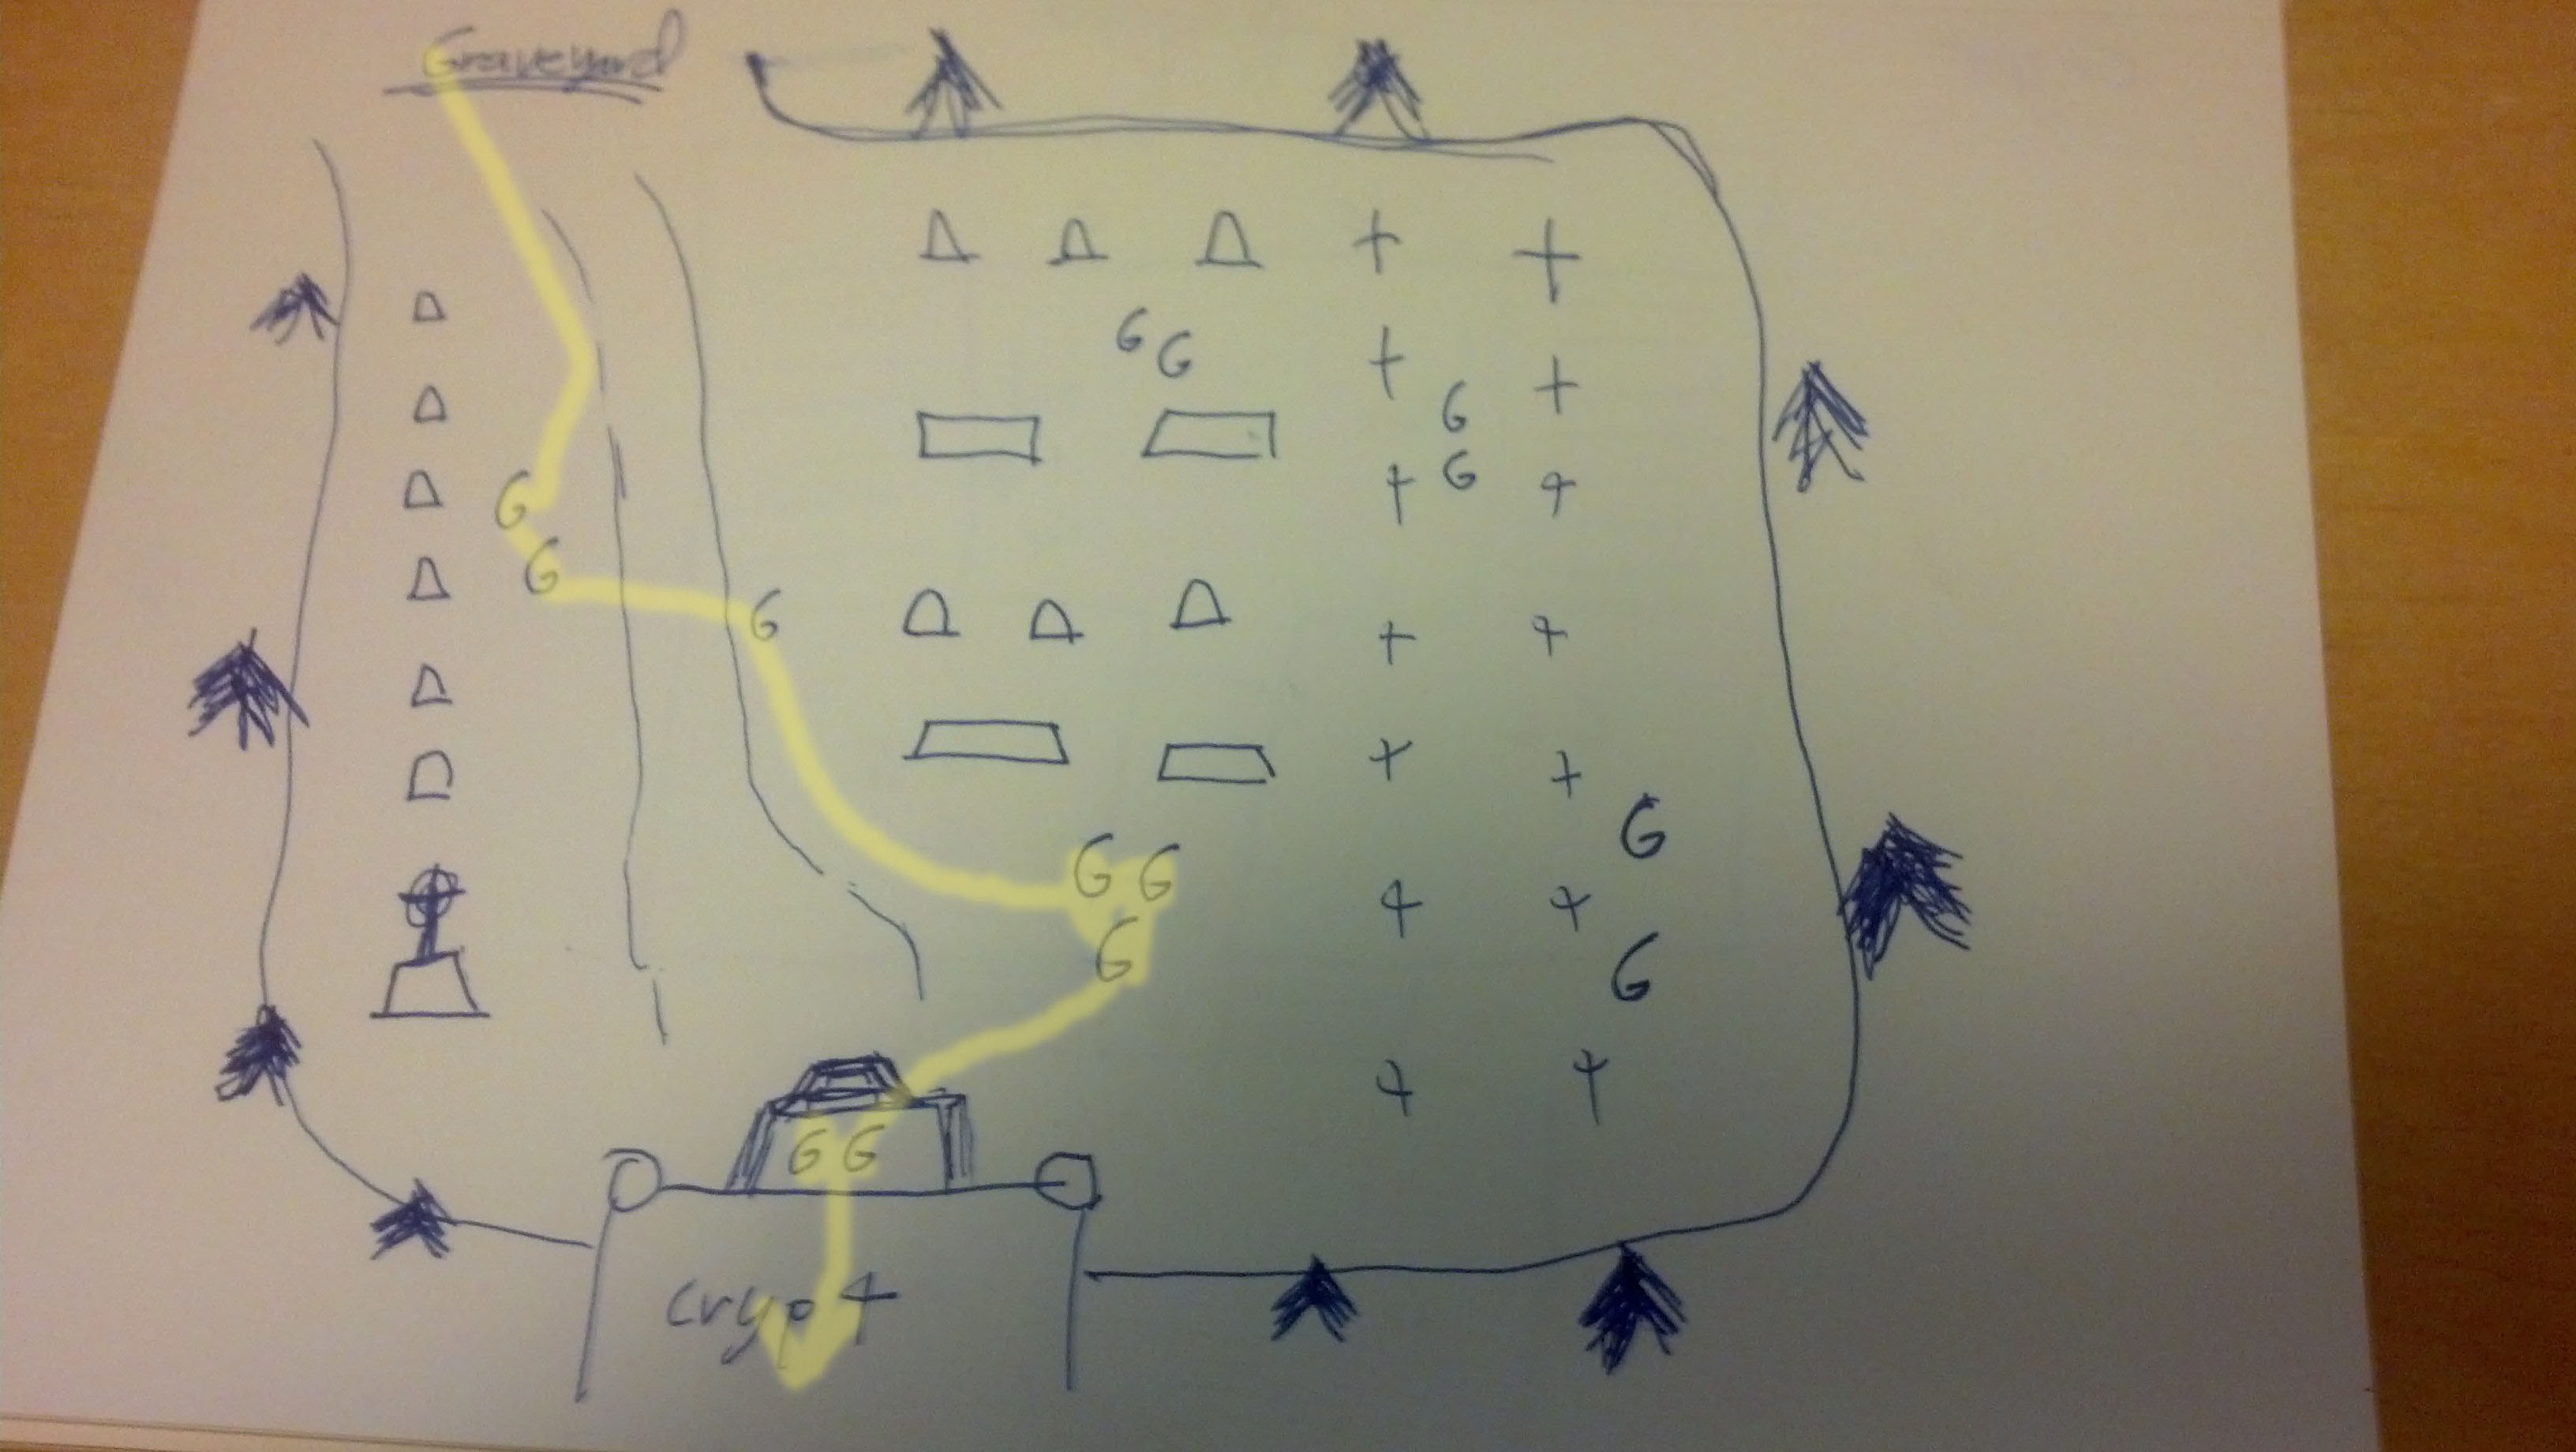 Graveyard
G G
G
G
G
G
G
G
G G
G
G
G G
Crypt